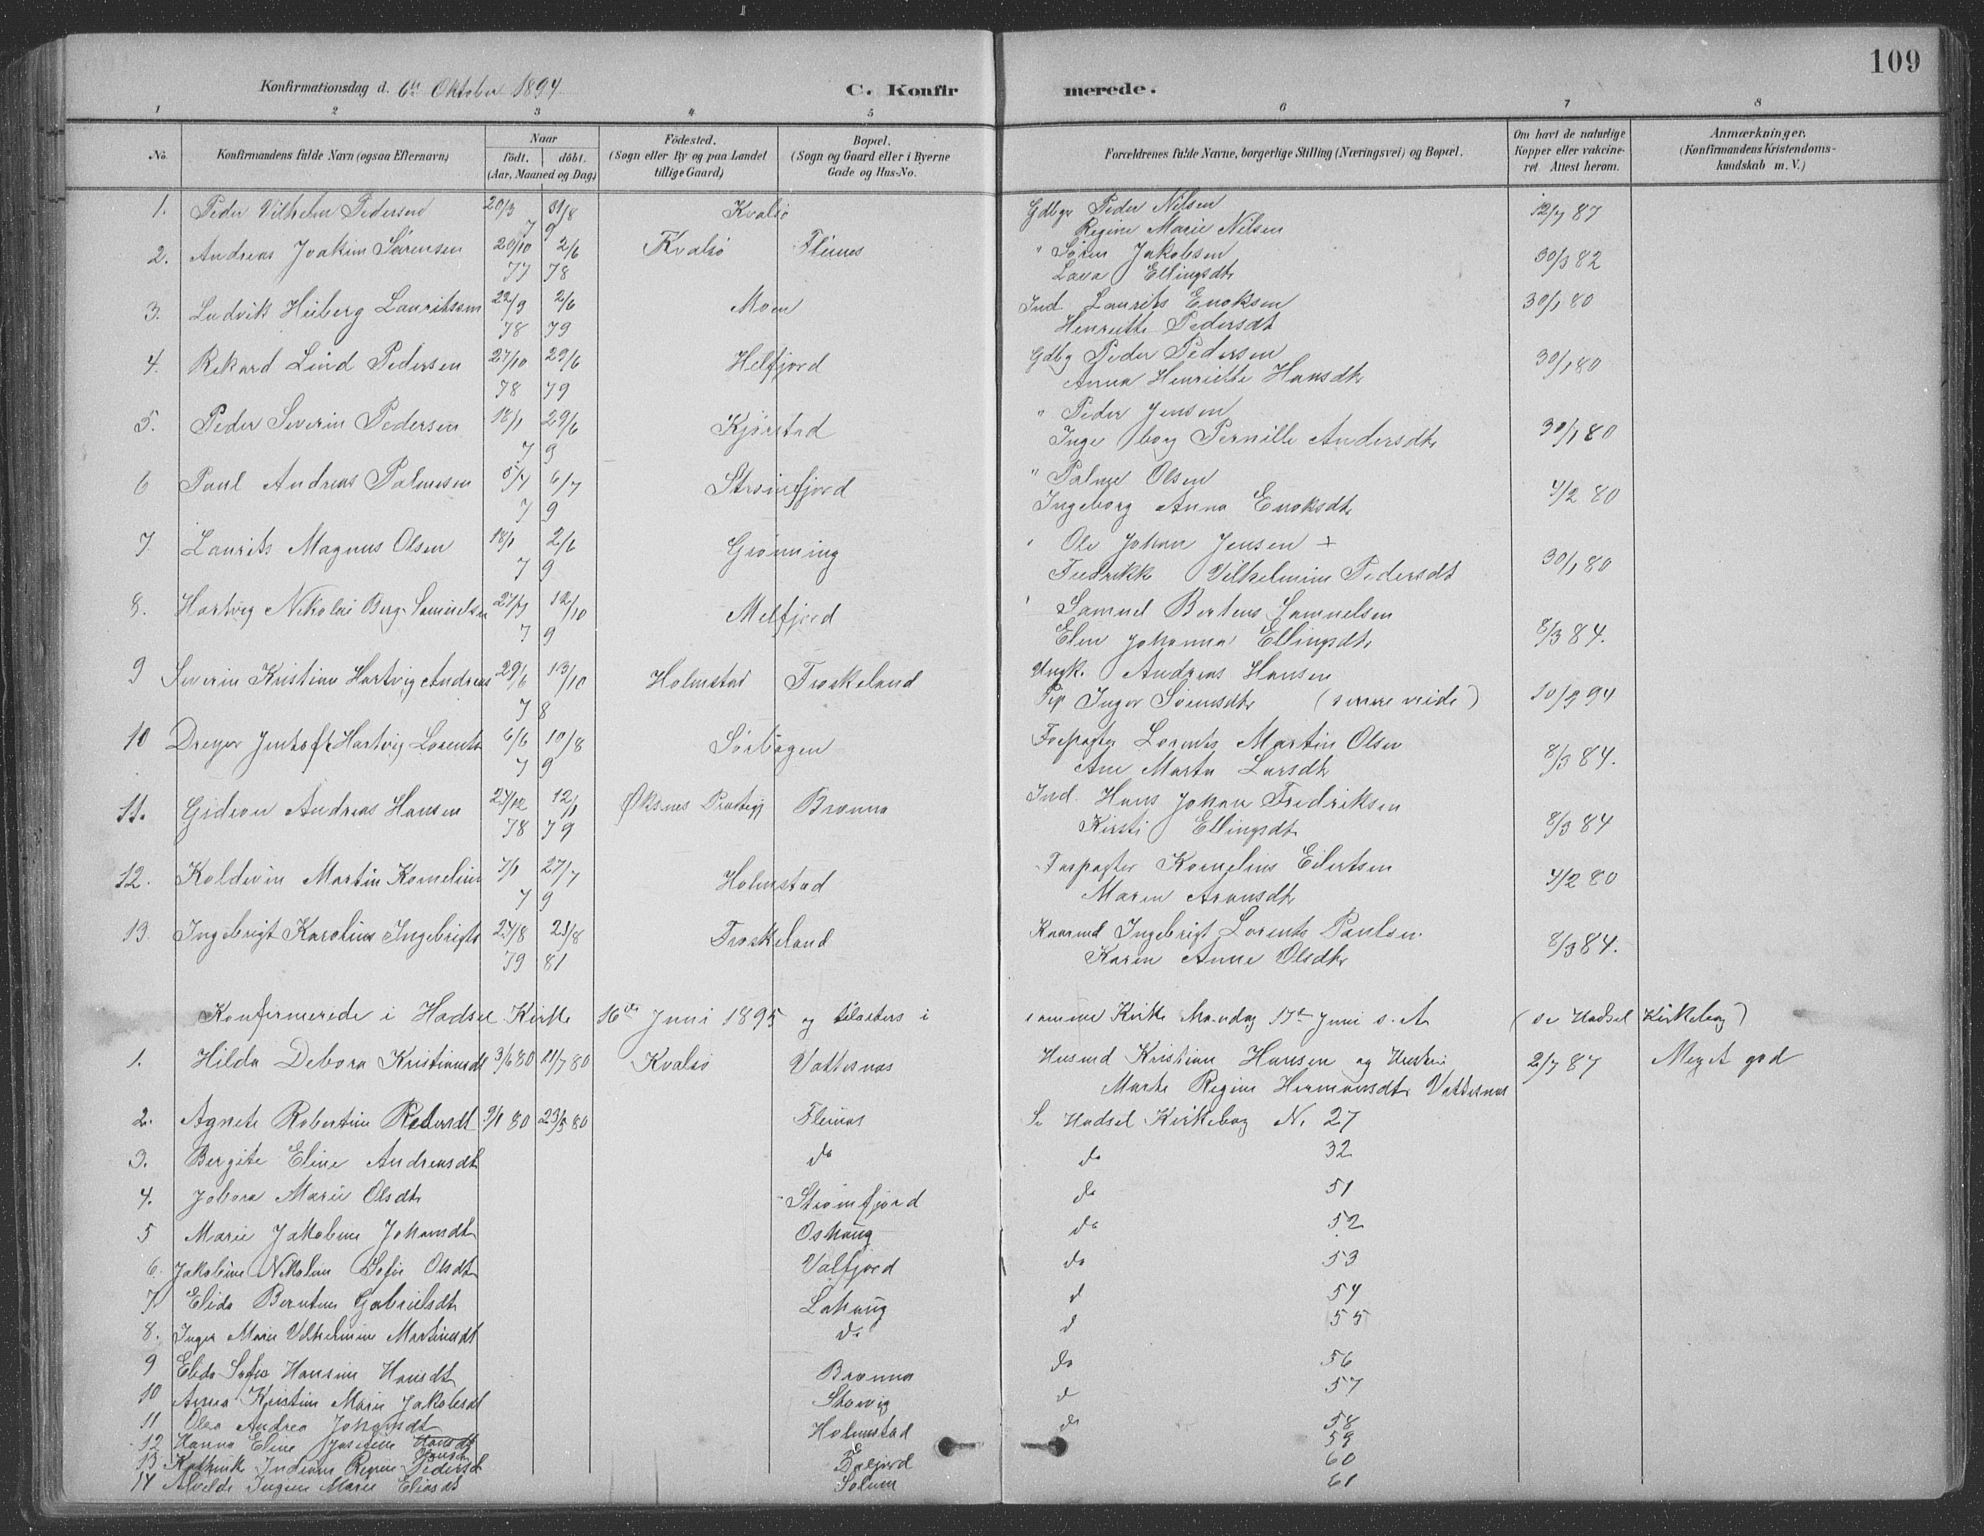 109
Konfirmationsdag d. 6te Oktober 1894.
C. Konfirmerede.
1 2 3 4 5 6 7 8
No.
Konfirmandens fulde Navn (ogsaa Efternavn)
Naar
født. døbt.
(Aar, Maaned og Dag)
Fødested.
(Sogn eller By og paa Landet
tillige Gaard)
Bopæl.
(Sogn og Gaard eller i Byerne
Gade og Hus-No.
Forældrenes fulde Navne, borgerlige Stilling (Næringsvei) og Bopæl.
Om havt de naturlige
Kopper eller vakcine-
ret. Attest herom.
Anmærkninger.
(Konfirmandens Kristendoms-
kundskab m. V.)
1. Peder Vilhelm Pedersen 20/3 31/8 Kvalsø Gdbgr Peder Nilsen 12/7 87
7 9 Regine Marie Nilsen
2. Andreas Joakim Sørensen 20/10 2/6 Kvalsø Fleines " Søren Jakobsen 30/3 82
77 78 Lava Ellingsdt
3. Ludvik Heiberg Lauritssen 22/9 2/6 Moen Ind. Laurits Enoksen 30/1 80
78 79 Henriette Pedersdt
4. Rikard Lind Pedersen 27/10 29/6 Melfjord Gdbg Peder Pedersen 30/1 80
78 79 Anna Henriette Hansdt
5. Peder Severin Pedersen 18/1 29/6 Kjørstad " Peder Jensen 30/1 80
7 9 Ingeborg Pernille Andersdt
6 Paul Andreas Palmesen 5/4 6/7 Strømfjord " Palme Olsen 4/2 80
7 9 Ingeborg Anna Enoksdt
7. Laurits Magnus Olsen 18/1 2/6 Grønning Ole Johan Jensen + 30/1 80
7 9 Fredrikke Vilhelmine Pedersdt
8. Hartvig Nikolai Berg Samuelsen 12/10 Melfjord Samuel Bertens Samuelsen 8/3 84.
7 9 Elen Johanna Ellingsdt
9 Severin Kristian Hartvig Andreas 29/6 13/10 Holmstad Froskeland Ungk. Andreas Hansen 10/9 94
7 8 Pige Inger Svensdt
10 Dreyer Jentoft Hartvig Lorents 6/6 10/8 Sørbogen Forpagter Lorents Martin Olsen 8/3 84.
7 9 Ane Marta Larsdt
11. Gideon Andreas Hansen 27/12 12/1 Øksnes Prestegj Brønna Ind. Hans Johan Fredriksen 8/3 84
78 79 Kirsti Ellingsdt
12. Koldevin Martin Kornelius 7/1 27/7 Holmstad Forpagter Kornelius Eilertsen 4/2 80
7 9 Maren Aronsdt
13. Ingebrigt Karolius Ingebrigts 27/8 21/8 Froskeland Kaarmd Ingebrigt Lorents Paulsen 8/3 84.
79 81 Karen Anne Olsdt
Konfirmerede i Hadsel Kirke 16de Juni 1895 og tilsters i samme Kirke Mandag 17de Juni s. A (se Hadsel Kirkebog)
1. Hilda Debora Kristiansdt 3/6 80 11/7 80 Kvalsø Vottesnes Husmd Kristian Hansen og Hustru 2/7 87 Meget god
Marte Regine Hermansdt Vottesnes
2. Agnete Robertine Pedersdt 9/1 80 23/5 80 Fleines Se Hadsel Kirkebog N. 27
3. Bergite Eline Andreasdt do do 32
4. Jobora Marie Olsdt Strømfjord do 51
5 Marie Jakobine Johansdt Oshaug do 52
6. Jakobine Nikoline Sofie Olsdt Valfjord do 53
7 Elida Berntine Gabrielsdt Lahaug d 54
8. Inger Marie Vilhelmine Martinsdt do d 55
9 Elida Sofie Hansine Hansdt Brønna do 56
10 Anna Kristine Marie Jakobsdt Skovig d 57
11 Olea Andrea Johansdt Holmstad do 58
12 Hanna Eline Josefine Hansdt 59
13 Kathrine Indiane Regine Pedersdt 60
14 Alvilde Ingine Marie Eliasdt 61